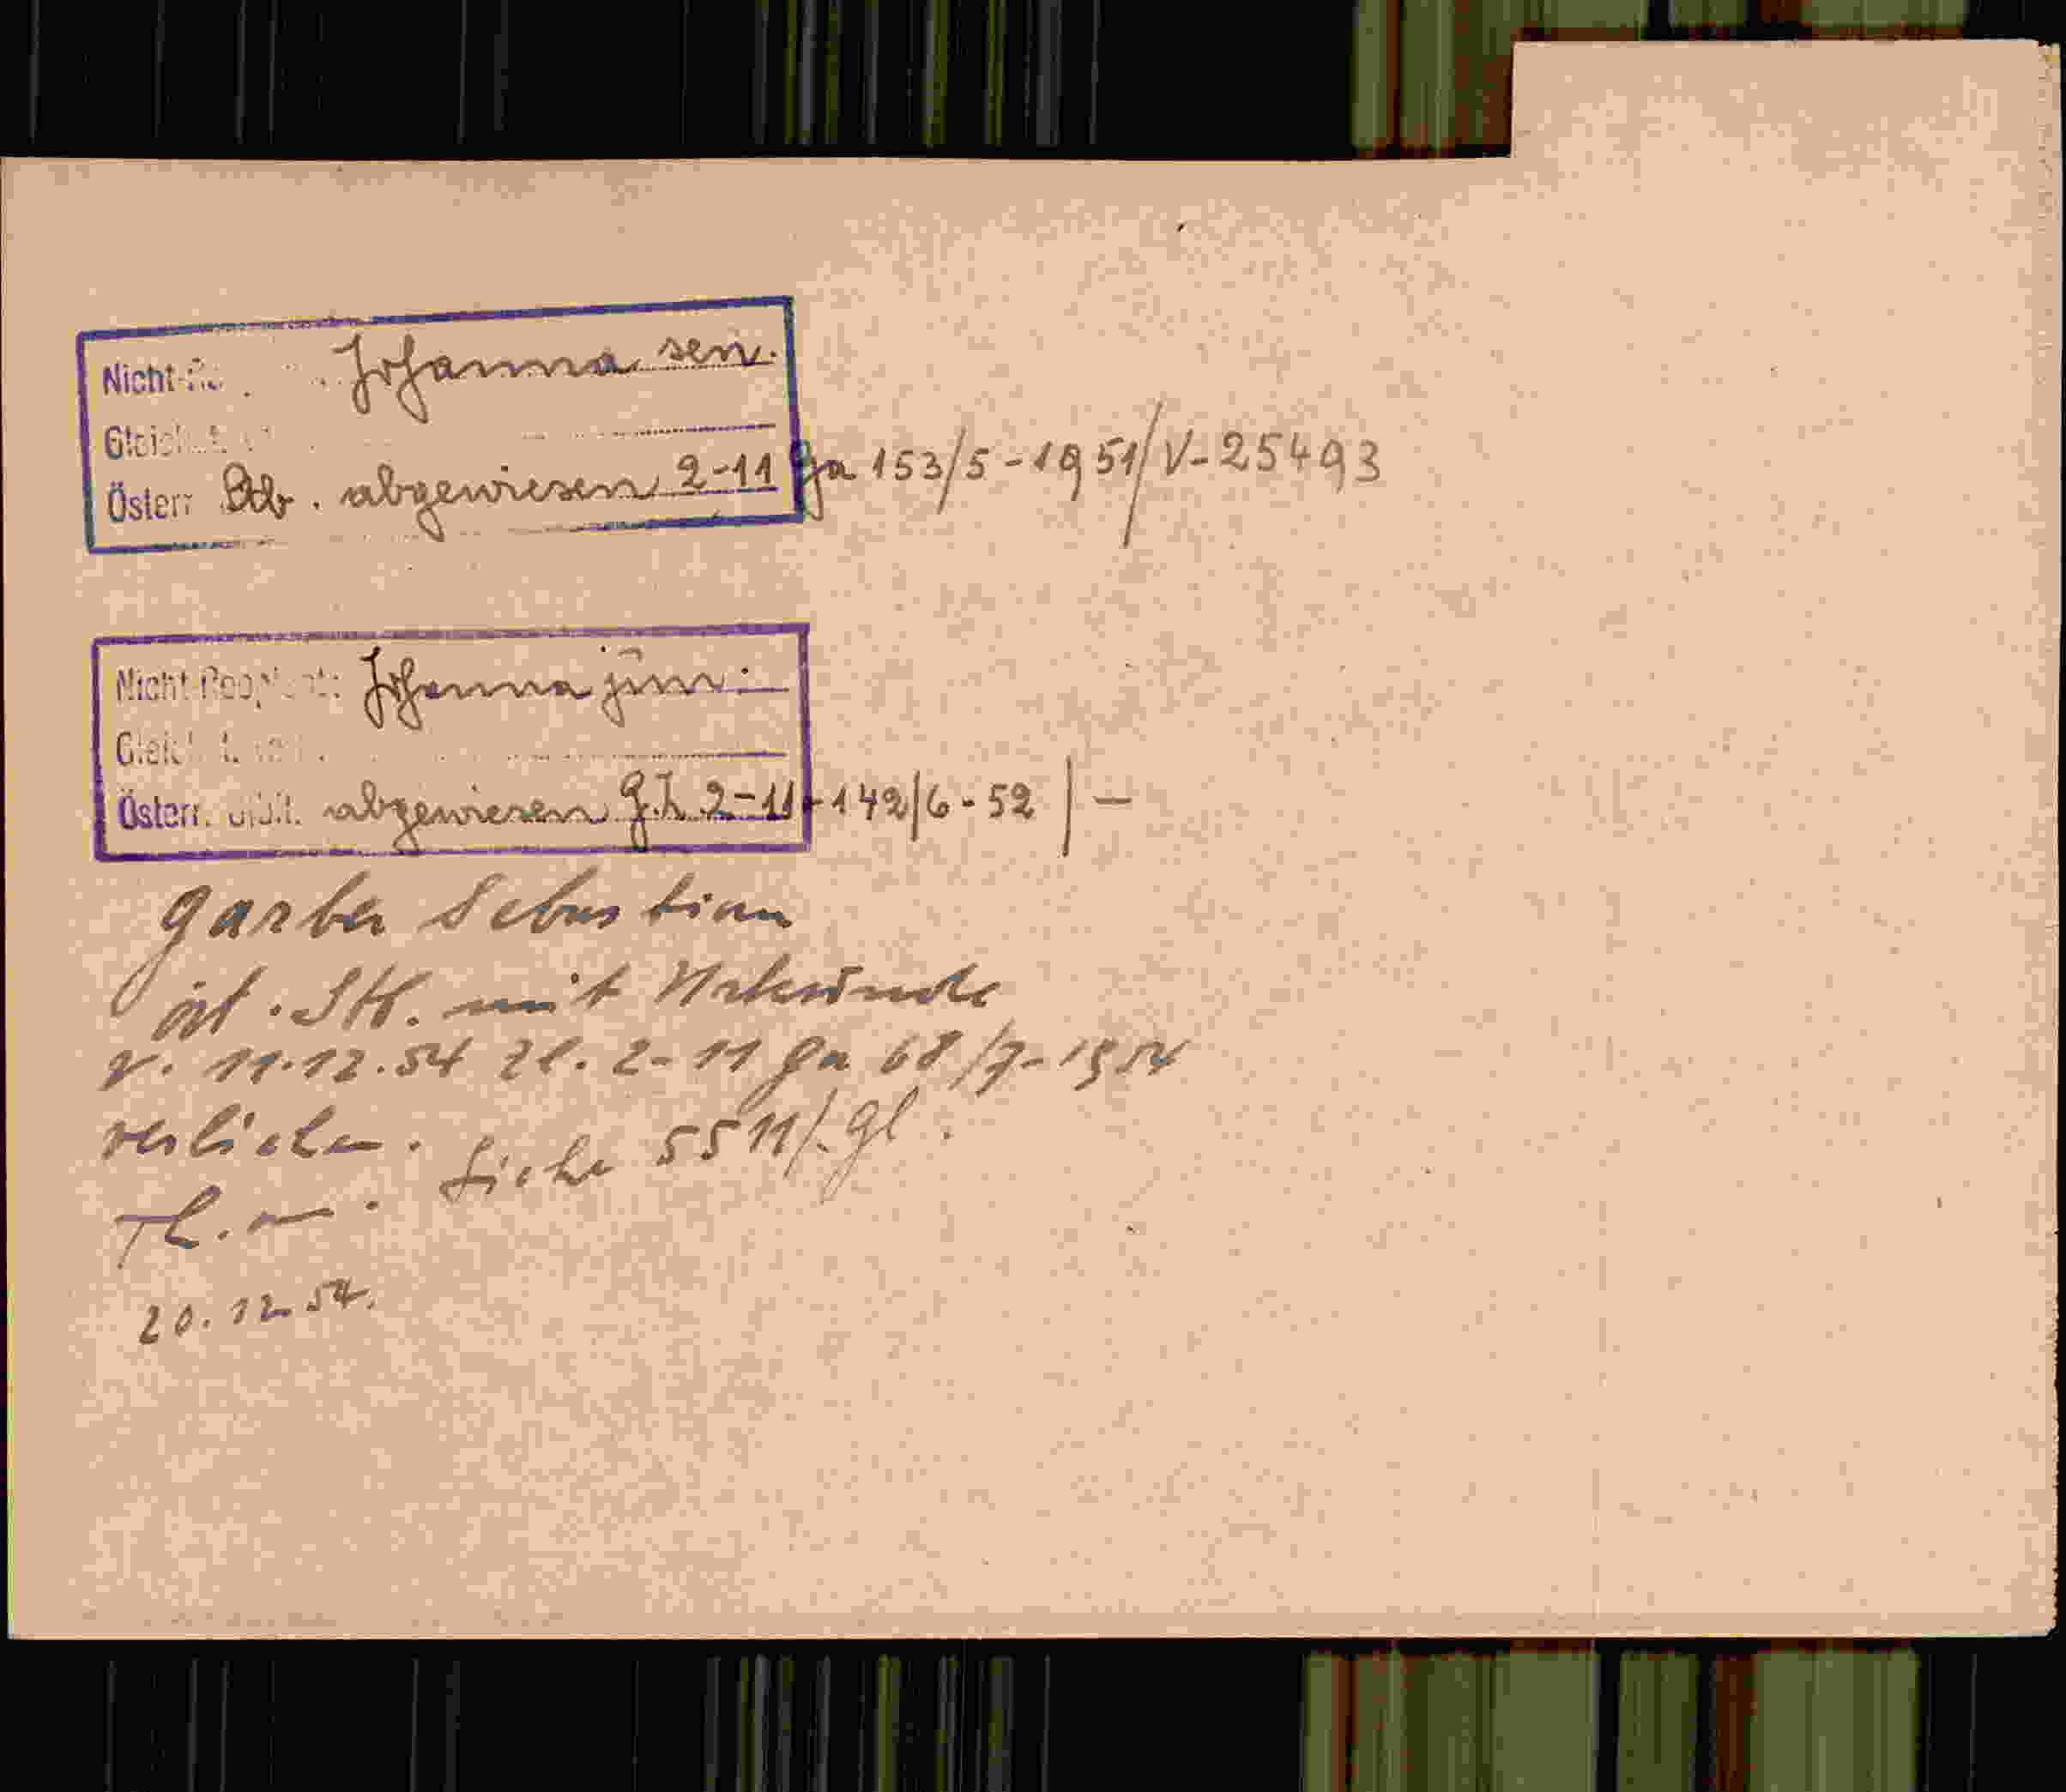 Nicht- Johanna sen.
Gleich
Österr. Stb. abgewiesen 2-11 Ga 153/5-1951/V-25493
Nicht-Reopt Johanna jun.
Gleich
Österr. abgewiesen G.Z. 2-11-142/6-52/-
Garber Sebastian
öst. Stb. mit Urkunde
v. 11.12.54 Zl. 2-11 Ga 68/7-1954
verliehen. Siehe 5511/. Gl.
20.12.54.